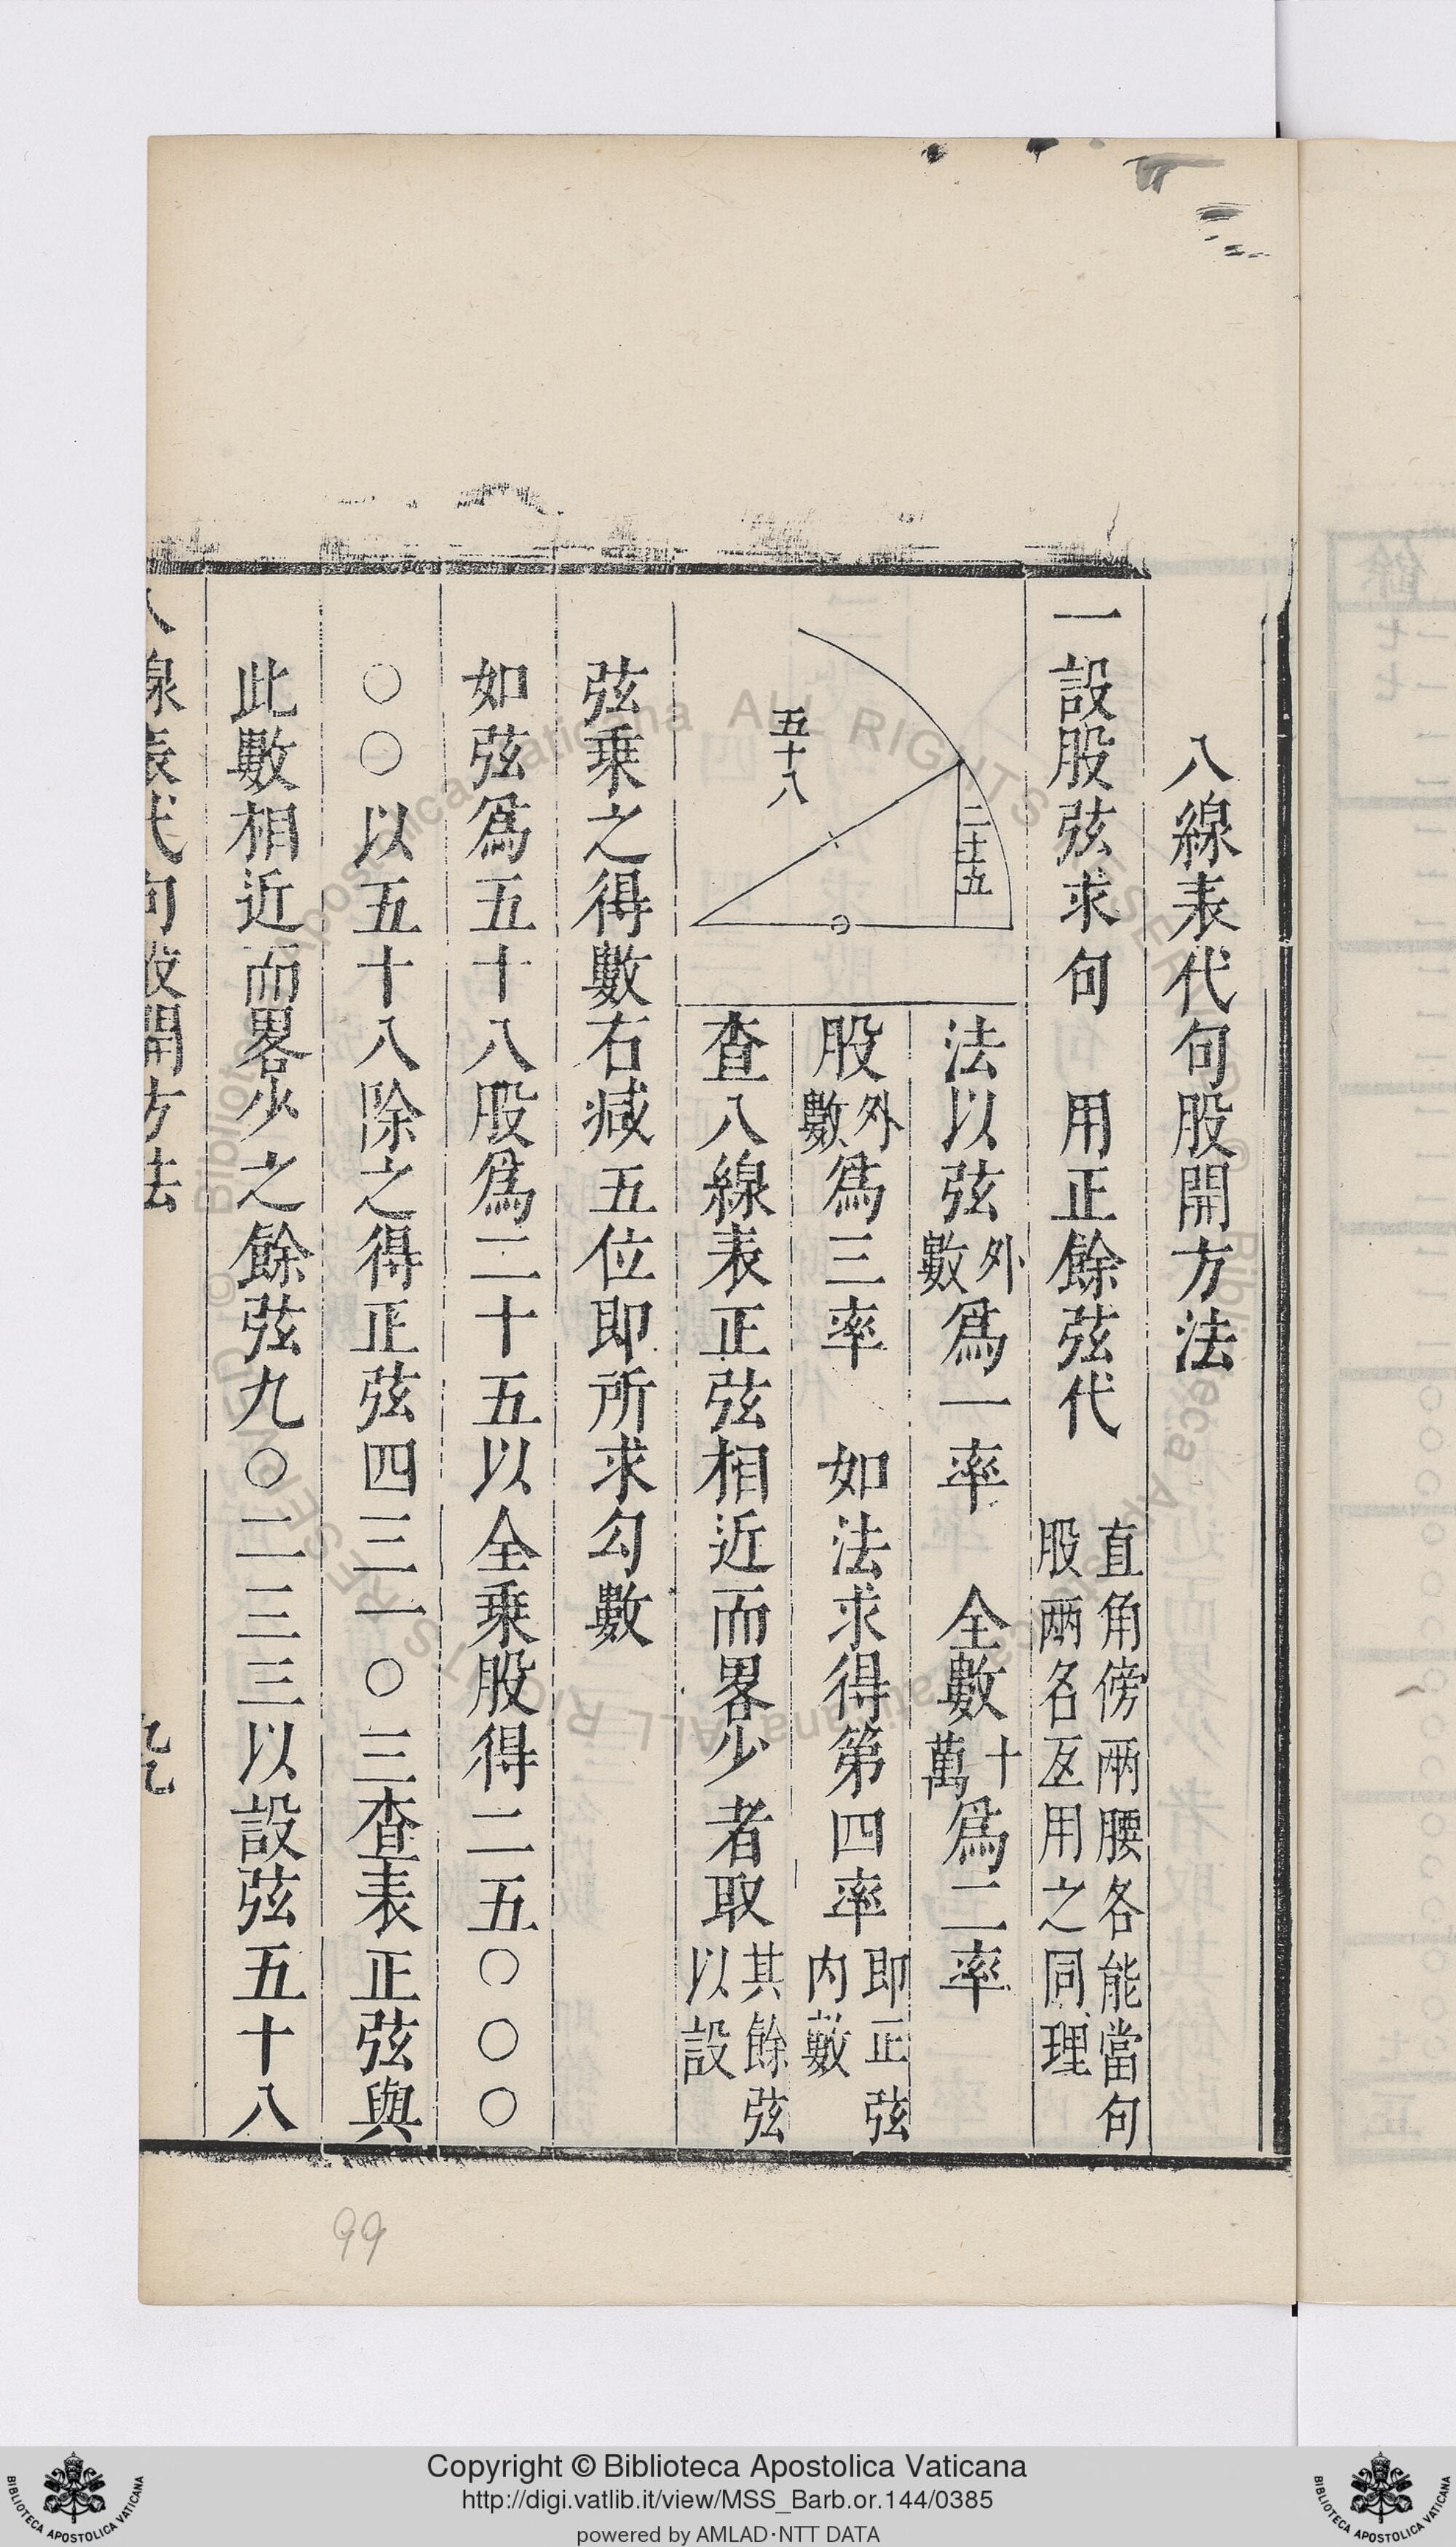 八線表代句股開方法
一設股弦求句　用正餘弦代　直角傍兩腰各能當句
股兩名互用之同理
五十八
二十五
法以弦外數爲一率　全數十萬爲二率
股外數爲三率　如法求得第四率即正弦内數
查八線表正弦相近而畧少者取其餘弦以設
弦乗之得數右减五位即所求勾數
如弦爲五十八股爲二十五以全乗股得二五〇〇〇
〇〇以五十八除之得正弦四三一〇三查表正弦與
此數相近而畧少之餘弦九〇二三三以設弦五十八
線表代句股開方法
99
Copyright © Biblioteca Apostolica Vaticana
http://digi.vatlib.it/view/MSS_Barb.or.144/0385
powered by AMLAD·NTT DATA
BIBLIOTECA APOSTOLICA VATICANA
BIBLIOTECA APOSTOLICA VATICANA